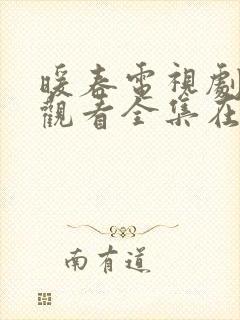 暖春電視劇
觀看全集在
南有道